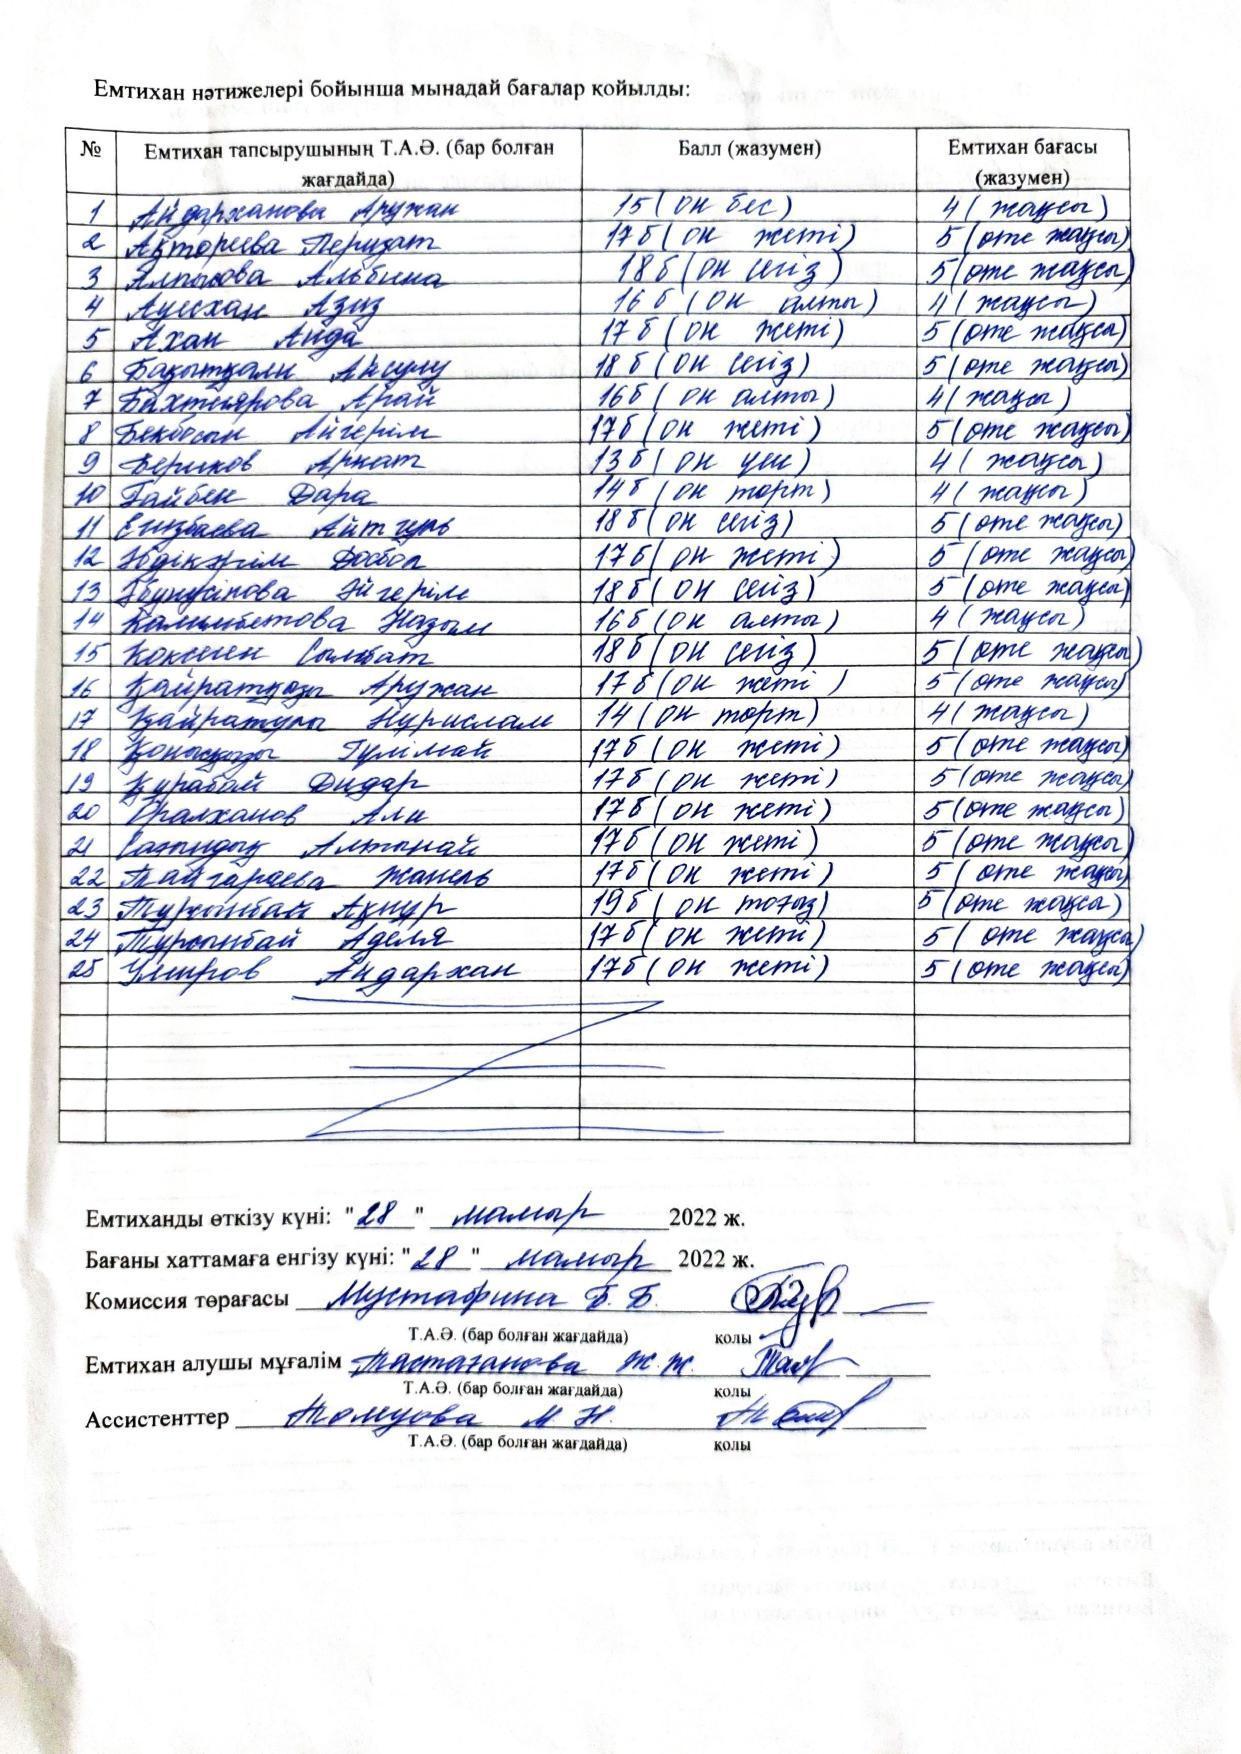 Емтихан нәтижелері бойынша мынадай бағалар қойылды:
№ Емтихан тапсырушының Т.А.Ә. (бар болған жағдайда) Балл (жазумен) Емтихан бағасы (жазумен)
1 Айдарханова Аружан 15 (он бес) 4 (жақсы)
2 Ақтореева Перизат 17б (он жеті) 5 (өте жақсы)
3 Алпысова Альбина 18б (он сегіз) 5 (өте жақсы)
4 Ауесхан Азиз 16б (он алты) 4 (жақсы)
5 Ахан Аида 17б (он жеті) 5 (өте жақсы)
6 Бақытқали Айсулу 18б (он сегіз) 5 (өте жақсы)
7 Бахтиярова Арай 16б (он алты) 4 (жақсы)
8 Бекбосын Айгерім 17б (он жеті) 5 (өте жақсы)
9 Бериков Арнат 13б (он үш) 4 (жақсы)
10 Ғайбен Дара 14б (он төрт) 4 (жақсы)
11 Егизбаева Айтгуль 18б (он сегіз) 5 (өте жақсы)
12 Әбдікәрім Досбол 17б (он жеті) 5 (өте жақсы)
13 Әйгерім 18б (он сегіз) 5 (өте жақсы)
14 Калимбетова Назым 16б (он алты) 4 (жақсы)
15 Көксеген Сымбат 18б (он сегіз) 5 (өте жақсы)
16 Қайратқызы Аружан 17б (он жеті) 5 (өте жақсы)
17 Қайратұлы Нурислам 14 (он төрт) 4 (жақсы)
18 Қонысқызы Гүлімай 17б (он жеті) 5 (өте жақсы)
19 Құрабай Дидар 17б (он жеті) 5 (өте жақсы)
20 Оралханов Али 17б (он жеті) 5 (өте жақсы)
21 Сағындық Алтынай 17б (он жеті) 5 (өте жақсы)
22 Тайгараева Жанель 17б (он жеті) 5 (өте жақсы)
23 Тұрсынбай Ақнұр 19б (он тоғыз) 5 (өте жақсы)
24 Тұрсынбай Аделя 17б (он жеті) 5 (өте жақсы)
25 Умиров Айдархан 17б (он жеті) 5 (өте жақсы)
Емтиханды өткізу күні: "28" мамыр 2022 ж.
Бағаны хаттамаға енгізу күні: "28" мамыр 2022 ж.
Комиссия төрағасы Мустафина Б. Б.
Т.А.Ә. (бар болған жағдайда) қолы
Емтихан алушы мұғалім Тастағанова Ж. Ж.
Т.А.Ә. (бар болған жағдайда) қолы
Ассистенттер М. Н.
Т.А.Ә. (бар болған жағдайда) қолы